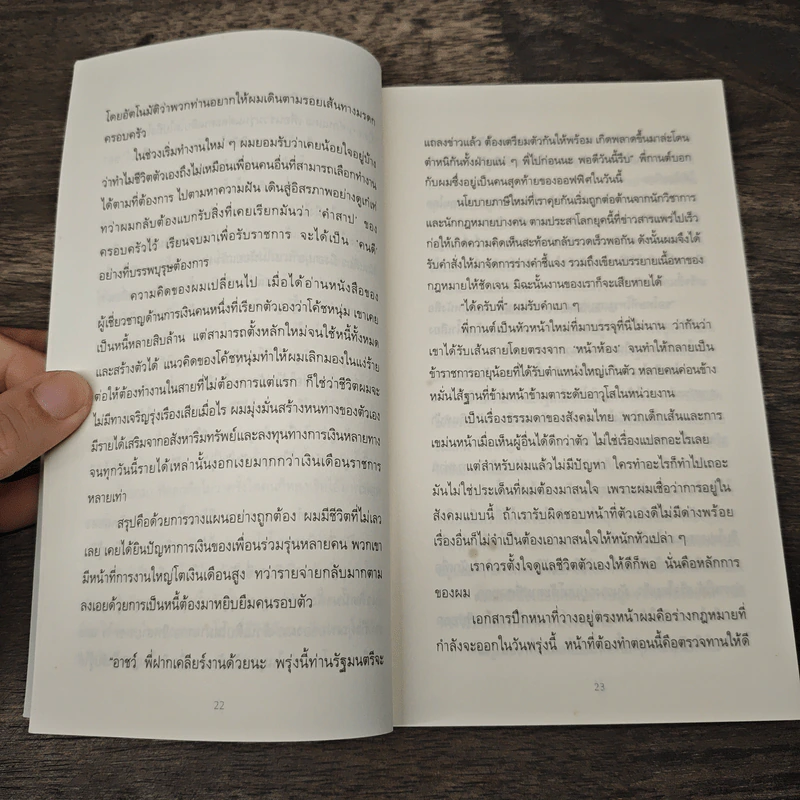 โดยอัตโนมัติว่าพวกท่านอยากให้ผมเดินตามรอยเส้นทางมรดก
ครอบครัว
ในช่วงเริ่มทำงานใหม่ ๆ ผมยอมรับว่าเคยน้อยใจอยู่บ้าง
ว่าทำไมชีวิตตัวเองถึงไม่เหมือนเพื่อนคนอื่นที่สามารถเลือกทำงาน
ได้ตามที่ต้องการ ไปตามหาความฝัน เดินสู่อิสรภาพอย่างดูเก๋เท่
ทว่าผมกลับต้องแบกรับสิ่งที่เคยเรียกมันว่า 'คำสาป' ของ
ครอบครัวไว้ เรียนจบมาเพื่อรับราชการ จะได้เป็น 'คนดี'
อย่างที่บรรพบุรุษต้องการ
ความคิดของผมเปลี่ยนไป เมื่อได้อ่านหนังสือของ
ผู้เชี่ยวชาญด้านการเงินคนหนึ่งที่เรียกตัวเองว่าโค้ชหนุ่ม เขาเคย
เป็นหนี้หลายสิบล้าน แต่สามารถตั้งหลักใหม่จนใช้หนี้ทั้งหมด
และสร้างตัวได้ แนวคิดของโค้ชหนุ่มทำให้ผมเลิกมองในแง่ร้าย
ต่อให้ต้องทำงานในสายที่ไม่ต้องการแต่แรก ก็ใช่ว่าชีวิตผมจะ
ไม่มีทางเจริญรุ่งเรืองเสียเมื่อไร ผมมุ่งมั่นสร้างหนทางของตัวเอง
มีรายได้เสริมจากอสังหาริมทรัพย์และลงทุนทางการเงินหลายทาง
จนทุกวันนี้รายได้เหล่านั้นงอกเงยมากกว่าเงินเดือนราชการ
หลายเท่า
สรุปคือด้วยการวางแผนอย่างถูกต้อง ผมมีชีวิตที่ไม่เลว
เลย เคยได้ยินปัญหาการเงินของเพื่อนร่วมรุ่นหลายคน พวกเขา
มีหน้าที่การงานใหญ่โตเงินเดือนสูง ทว่ารายจ่ายกลับมากตาม
ลงเอยด้วยการเป็นหนี้ต้องมาหยิบยืมคนรอบตัว
"อาชว์ พี่ฝากเคลียร์งานด้วยนะ พรุ่งนี้ท่านรัฐมนตรีจะ
22
แถลงข่าวแล้ว ต้องเตรียมตัวกันให้พร้อม เกิดพลาดขึ้นมาล่ะโดน
ตำหนิกันทั้งฝ่ายแน่ ๆ พี่ไปก่อนนะ พอดีวันนี้รีบ" พี่กานต์บอก
กับผมซึ่งอยู่เป็นคนสุดท้ายของออฟฟิศในวันนี้
นโยบายภาษีใหม่ที่เราคุ้ยกันเริ่มถูกต่อต้านจากนักวิชาการ
และนักกฎหมายบางคน ตามประสาโลกยุคนี้ที่ข่าวสารแพร่ไปเร็ว
ก่อให้เกิดความคิดเห็นสะท้อนกลับรวดเร็วพอกัน ดังนั้นผมจึงได้
รับคำสั่งให้มาจัดการร่างคำชี้แจง รวมถึงเขียนบรรยายเนื้อหาของ
กฎหมายให้ชัดเจน มิฉะนั้นงานของเราก็จะเสียหายได้
"ได้ครับพี่" ผมรับคำเบา ๆ
พี่กานต์เป็นหัวหน้าใหม่ที่มาบรรจุที่นี่ไม่นาน ว่ากันว่า
เขาได้รับเส้นสายโดยตรงจาก 'หน้าห้อง' จนทำให้กลายเป็น
ข้าราชการอายุน้อยที่ได้รับตำแหน่งใหญ่เกินตัว หลายคนค่อนข้าง
หมั่นไส้ฐานที่ข้ามหน้าข้ามตาระดับอาวุโสในหน่วยงาน
เป็นเรื่องธรรมดาของสังคมไทย พวกเด็กเส้นและการ
เขม่นหน้าเมื่อเห็นผู้อื่นได้ดีกว่าตัว ไม่ใช่เรื่องแปลกอะไรเลย
แต่สำหรับผมแล้วไม่มีปัญหา ใครทำอะไรก็ทำไปเถอะ
มันไม่ใช่ประเด็นที่ผมต้องมาสนใจ เพราะผมเชื่อว่าการอยู่ใน
สังคมแบบนี้ ถ้าเรารับผิดชอบหน้าที่ตัวเองดีไม่มีด่างพร้อย
เรื่องอื่นก็ไม่จำเป็นต้องเอามาสนใจให้หนักหัวเปล่า ๆ
เราควรตั้งใจดูแลชีวิตตัวเองให้ดีก็พอ นั่นคือหลักการ
ของผม
เอกสารปึกหนาที่วางอยู่ตรงหน้าผมคือร่างกฎหมายที่
กำลังจะออกในวันพรุ่งนี้ หน้าที่ต้องทำตอนนี้คือตรวจทานให้ดี
23